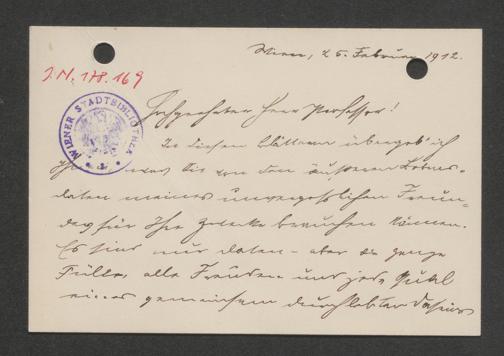 Wien, 25. Februar 1912.
J.N. 178.169
WIENER STADTBIBLIOTHEK
Hochgeehrter Herr Professor!
In diesen Blättern übergeb' ich
was Sie von den äußeren Lebens-
daten meines unvergesslichen Freun-
des für Ihre Zwecke brauchen können.
Es sind nur Daten - aber die ganze
Fülle, alle Freuden und jede Qual
eines gemeinsam durchlebten Daseins